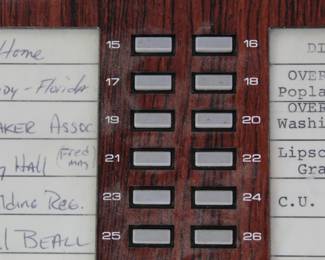 Home
15
16
Florida
17
18
OVER
Popla
Assoc.
19
20
OVER
Washin
HALL (Fred
21
22
Lipsc
Gra
lding Reg.
23
24
C.U.
Beall
25
26